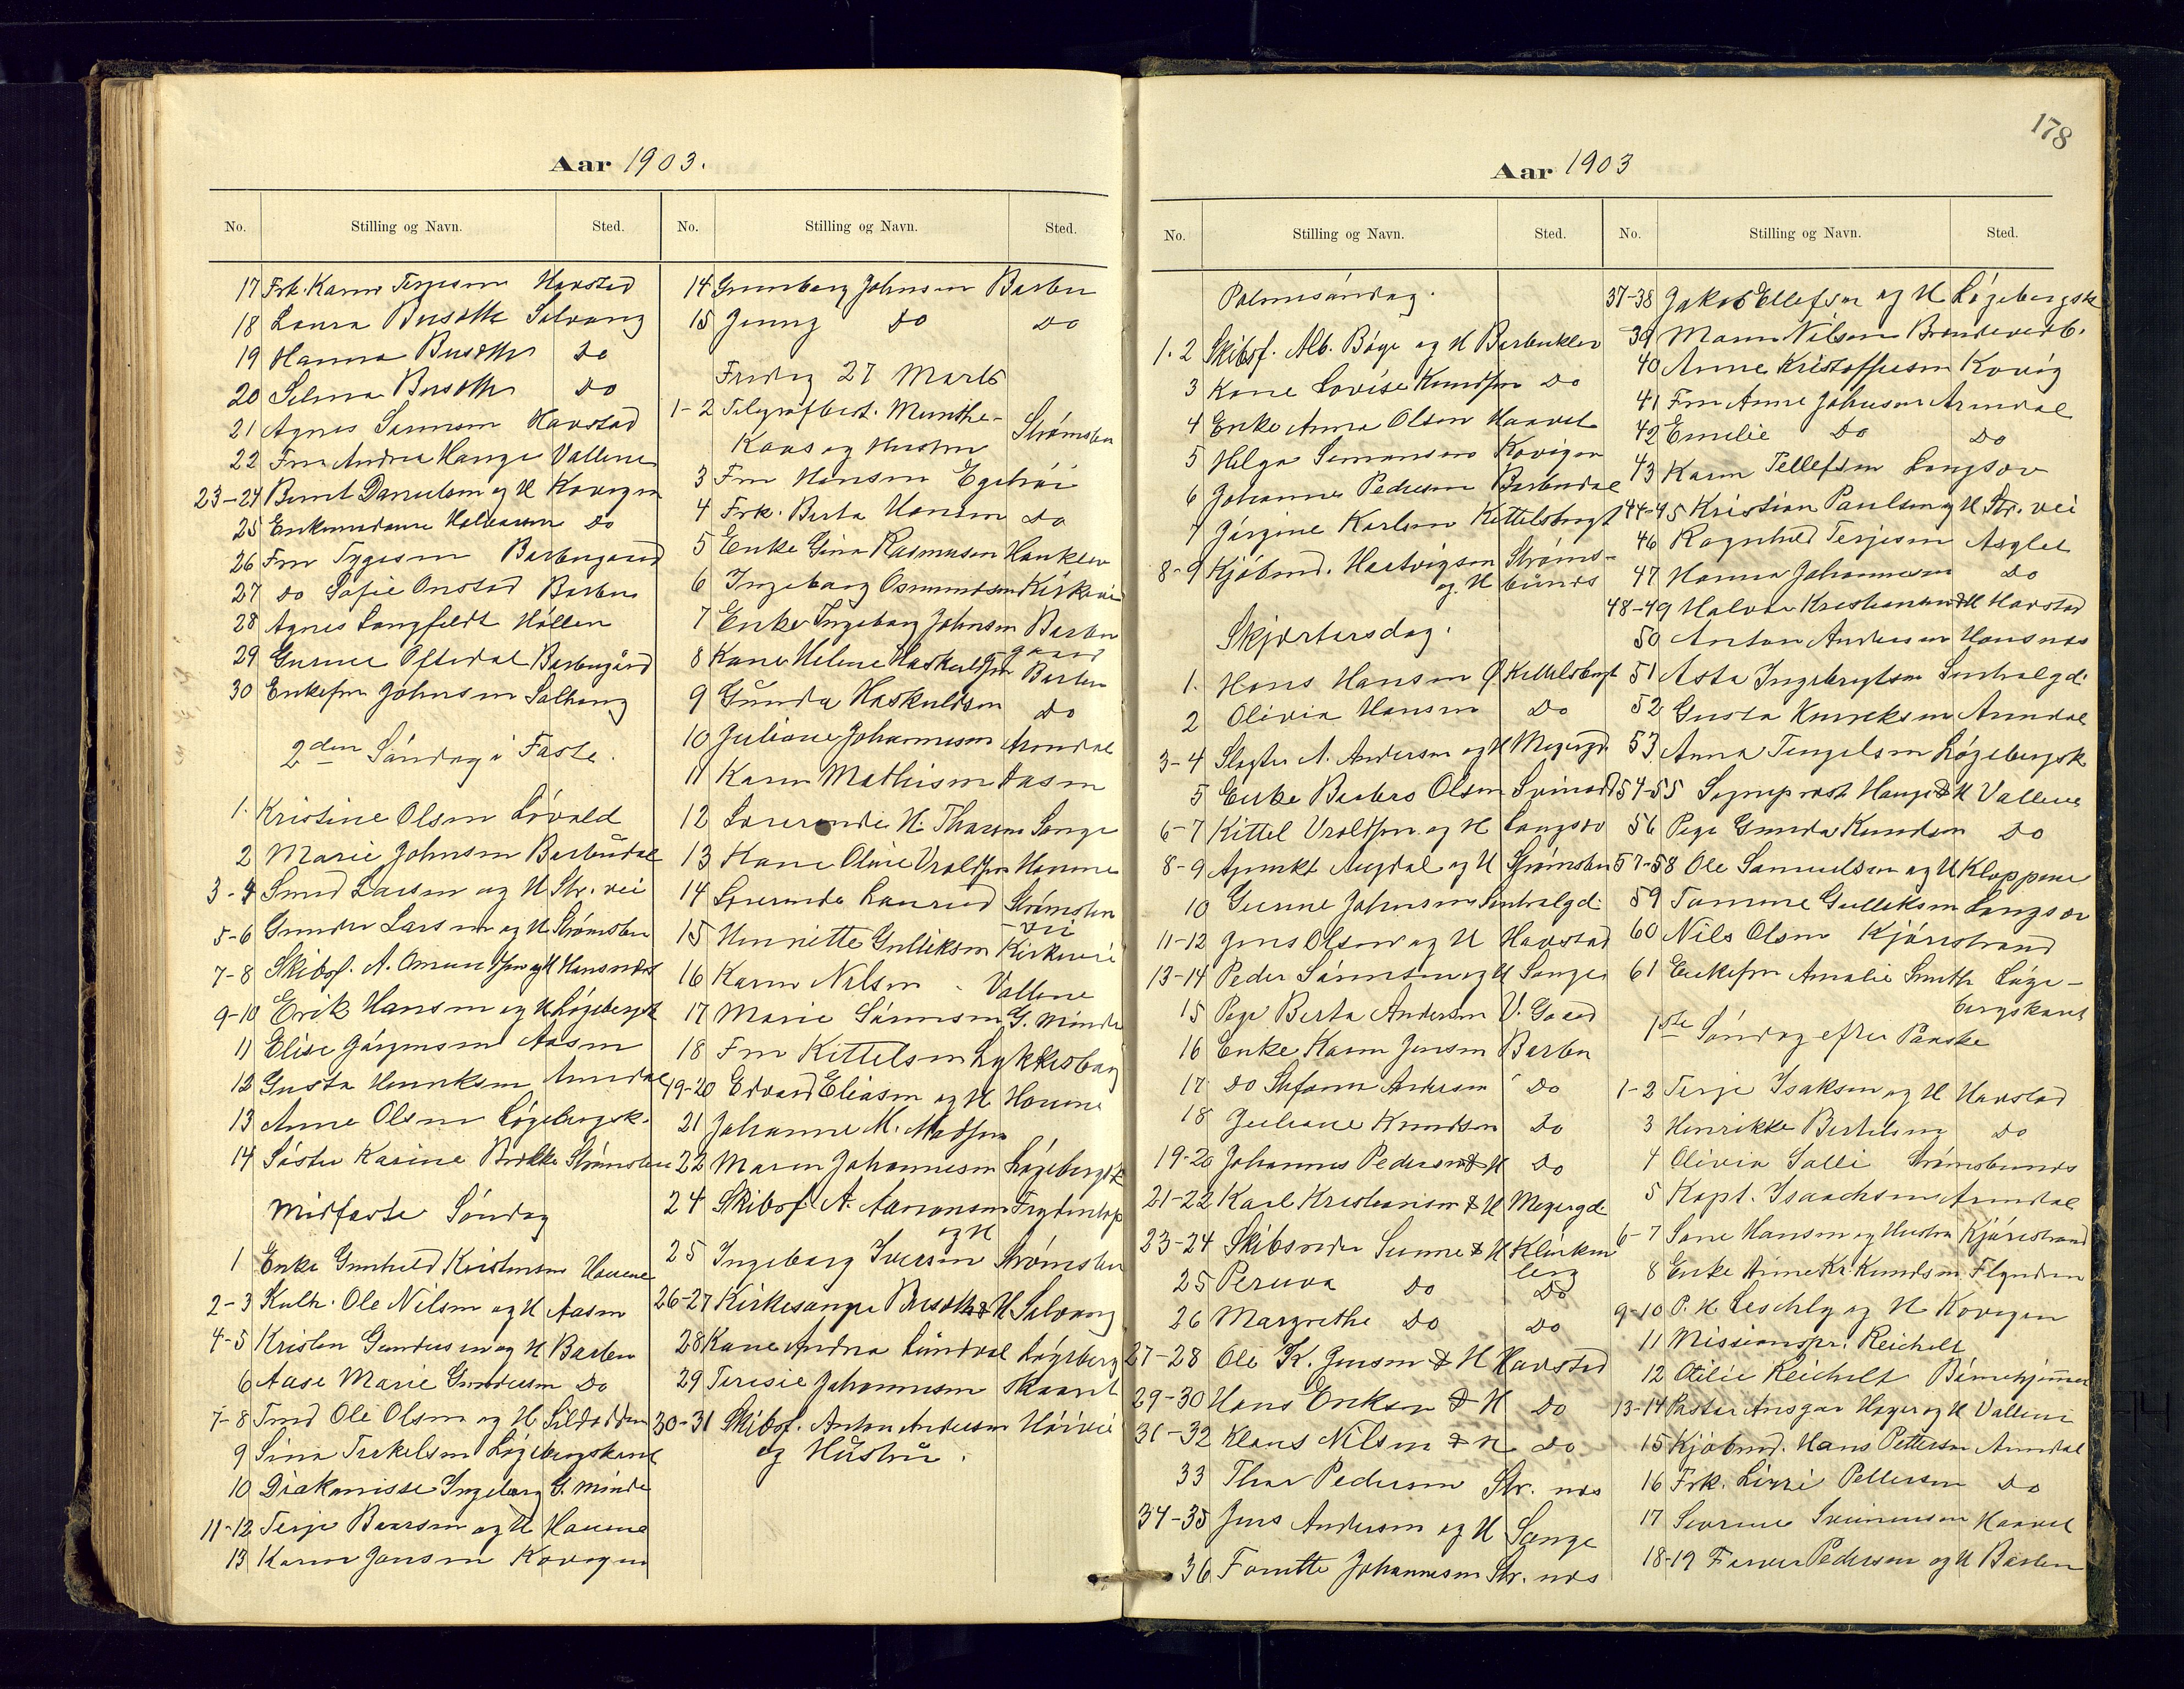 Aar 1903.
No. Stilling og Navn. Sted.
17 Frk. Karen Terjesen Havstad
18 Laura Busoth Solvang
19 Hanna Busoth do
20 Selma Busoth do
21 Agnes Havstad
22 Fru Andrea Hauge Vallene
23-24 Bernt Danielsen og H Kovigen
25 Enkemadame Halvorsen do
26 Fru Tygesen Barbugaard
27 do Sofie Onstad Barbu
28 Agnes Langfeldt Höllen
29 Gurine Oftedal Barbugård
30 Enkefru Johnsen Solhaug
2den Söndag i Faste.
1. Kristine Olsen Lövold
2 Marie Johnsen Barbudal
3-4 Smed Larsen og H Str. vei
5-6 Gunder Larsen og H Strömsbu
7-8 Skibsf. A. Omundsen og H Hansnæs
9-10 Erik Hansen og H Lögebergsk
11 Elise Jörgensen Aasen
12 Gusta Henriksen Arendal
13 Anne Olsen Lögebergsk.
14 Söster Karine Strömsbu
Midfaste Söndag
1 Enke Gunhild Kristensen Havene
2-3 Ole Nilsen og H Aasen
4-5 Kristen Gundersen og H Barbu
6 Aase Marie Gundersen do
7-8 Tmd Ole Olsen og H Sildodden
9 Sina Terkelsen Lögebergskaret
10 Diakonisse Ingeborg G. minde
11-12 Terje Baarsen og H Havene
13 Karen Jensen Kovigen
No. Stilling og Navn. Sted.
14 Gunborg Johnsen Barbu
15 Jenny do do
Fredag 27 Marts
1-2 Telegrafbest. Munthe-
Kaas og Hustru Strömsbu
3 Fru Hansen Egehöi
4 Frk. Berta Hansen do
5 Enke Gina Rasmusen Hauklev
6 Ingeborg Osmundsen Kirkevei
7 Enke Ingeborg Johnsen Barbu
gaard
8 Kone Helene Haskuldsen Barbu
9 Gunda Haskuldsen do
10 Juliane Johannesen Arendal
11 Karen Mathisen Aasen
12 Lærerinde H. Thorsen Songe
13 Kone Oline Vraldsen Havene
14 Lærerinde Strömsbu
vei
15 Henriette Gulliksen Kirkevei
16 Karen Nilsen Vallene
17 Marie Sörensen G. minde
18 Fru Kittelsen Lykkesborg
19-20 Edvard Eliasen og H Havene
21 Johanne M. Madsen
22 Maren Johannesen Lögebergsk
24 Skibsf. A. Aanonsen Frydenhøi
og H
25 Ingeborg Iversen Strömsbu
26-27 Kirkesanger Busoth & H Solvang
28 Kone Andrea Lundvol Lögeberg
29 Teresie Johannesen skaaret
30-31 Skibsf. Anton Andersen Höivei
og Hustru.
178
Aar 1903
No. Stilling og Navn. Sted.
Palmesöndag.
1.2 Skibsf. Alb. Böge og H Barbuklev
3 Kone Lovise Knudsen do
4 Enke Anna Olsen Haavet
5 Helga Simonsen Kovigen
6 Johanne Pedersen Barbudal
7 Jörgine Karlsen Kittelsbugt
8-9 Kjöbmd. Hartvigsen Ströms-
og H bunds
Skjærtorsdag.
1. Hans Hansen Ö. Kittelsbugt
2 Olivia Hansen do
3-4 Slagter A. Andersen og H Meyergd.
5 Enke Barbro Olsen Svinodd
6-7 Kittel Vraldsen og H Langsæ
8-9 Adjunkt og H Strömsbu
10 Gunne Johnsen Sentralgd.
11-12 Jens Olsen og H Havstad
13-14 Peder Sörensen og H Songe
15 Pige Berta Andersen V. Gaard
16 Enke Karen Jensen Barbu
17 do Stefanie Andersen do
18 Juliane Knudsen do
19-20 Johannes Pedersen & H do
21-22 Karl Kristiansen & H Meyergd.
23-24 Skibsreder Sunne & H Klinken
berg
25 Peruva do do
26 Margrethe do do
27-28 Ole K. Jensen & H Havstad
29-30 Hans Eriksen & H do
31-32 Klaus Nilsen & H do
33 Thor Pedersen Str. næs
34-35 Jens Andersen og H Songe
36 Johannesen Str. næs
No. Stilling og Navn. Sted.
37-38 Jakob Ellefsen og H Lögebergsk
39 Maren Nilsen
40 Anne Kristoffersen Kovig
41 Fru Anne Johnsen Arendal
42 Emilie do do
43 Karen Tellefsen Langsæ
44-45 Kristian Paulsen og H Str. vei
46 Ragnhild Terjesen
47 Hanna Johannesen do
48-49 Halvor Kristiansen & H Havstad
50 Anton Andersen Hansnæs
51 Asta Ingebrigtsen Sentralgd.
52 Gusta Henriksen Arendal
53 Anna Tengelsen Lögebergsk
54-55 Sogneprest Hauge & H Vallene
56 Pige Gunda Knudsen do
57-58 Ole Samuelsen og H Kloppene
59 Tomine Gulliksen Langsæ
60 Nils Olsen Kjörestrand
61 Enkefru Amalie Smith Löge-
bergskaret
1ste Söndag efter Paaske
1-2 Terje Isaksen og H Havstad
3 Henrikke Bertelsen do
4 Olivia Salli Strömsbunds
5 Kapt. Isachsen Arendal
6-7 Sone Hansen og Hustru Kjörestrand
8 Enke Anne Kr. Knudsen Flynden
9-10 P. H. Leschly og H Kovigen
11 Missionspr. Reichelt
12 Otilie Reichelt Börnehjemmet
13-14 Pastor Ansgar Höyer og H Vallene
15 Kjöbmd. Hans Pettersen Arendal
16 Frk. Lizzi Pettersen do
17 Severine Haavet
18-19 Pedersen og H Barbu